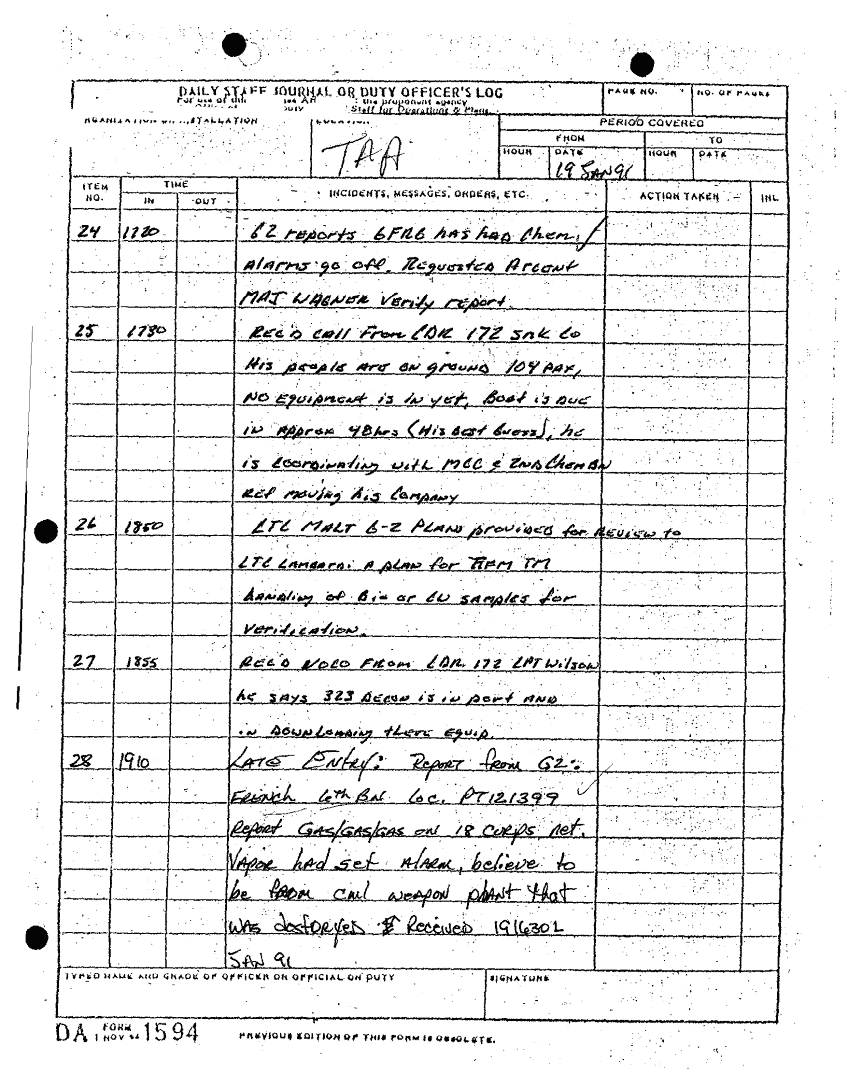 DAILY STAFF JOURNAL OR DUTY OFFICER'S LOG
For use of this see AR ; the proponent agency
Staff for Operations & Plans.
PAGE NO.
NO. OF PAGES
PERIOD COVERED
FROM
TO
HOUR
DATE
HOUR
DATE
TAA
19 JAN 91
ITEM NO.
TIME
IN
OUT
INCIDENTS, MESSAGES, ORDERS, ETC.
ACTION TAKEN
INL
24 1720 G2 reports 6FRG has had Chem.
Alarms go off. Requested Arcent
MAJ WAGNER Verify report.
25 1730 REC'D Call From CDR 172 Smk Co
His people are on ground 104 PAX,
NO Equipment is in yet, Boat is due
in Approx 48hrs (His best Guess), he
is Coordinating with MCC & 2nd Chem BN
REF Moving his Company
26 1850 LTC MALT G-2 Plans provided for Review to
LTC a plan for TM
handling of Bio or CW samples for
verification.
27 1855 REC'D From CDR 172 CPT Wilson
he says 323 Decon is in port AND
in Downloading there equip.
28 1910 LATE Entry: Report from G2:
FRENCH 6th BN loc. PT121399
Report GAS/GAS/GAS on 18 CORPS net.
VAPOR had set Alarm, believe to
be FROM CML weapon plant that
was destoryed Received 191630L
JAN 91
TYPED NAME AND GRADE OF OFFICER OR OFFICIAL ON DUTY
SIGNATURE
DA FORM 1594
1 NOV
PREVIOUS EDITION OF THIS FORM IS OBSOLETE.